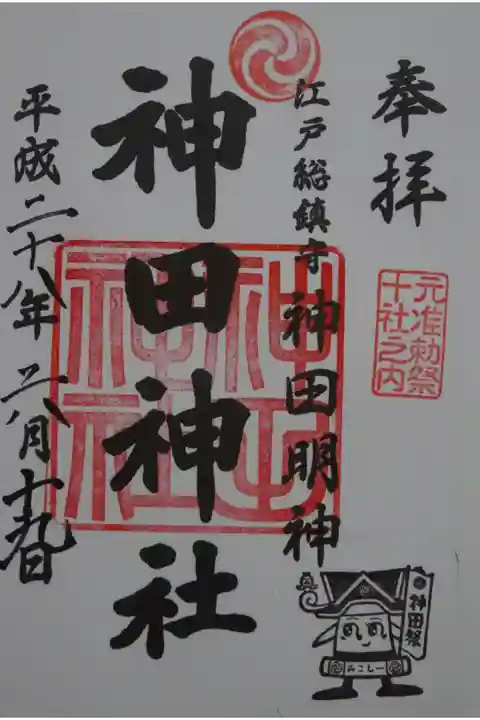 奉拝
元准勅祭
十社之内
江戸総鎮守 神田明神
神田神社
神田
神社
平成二十八年 六月十九日
神田祭
みこしー